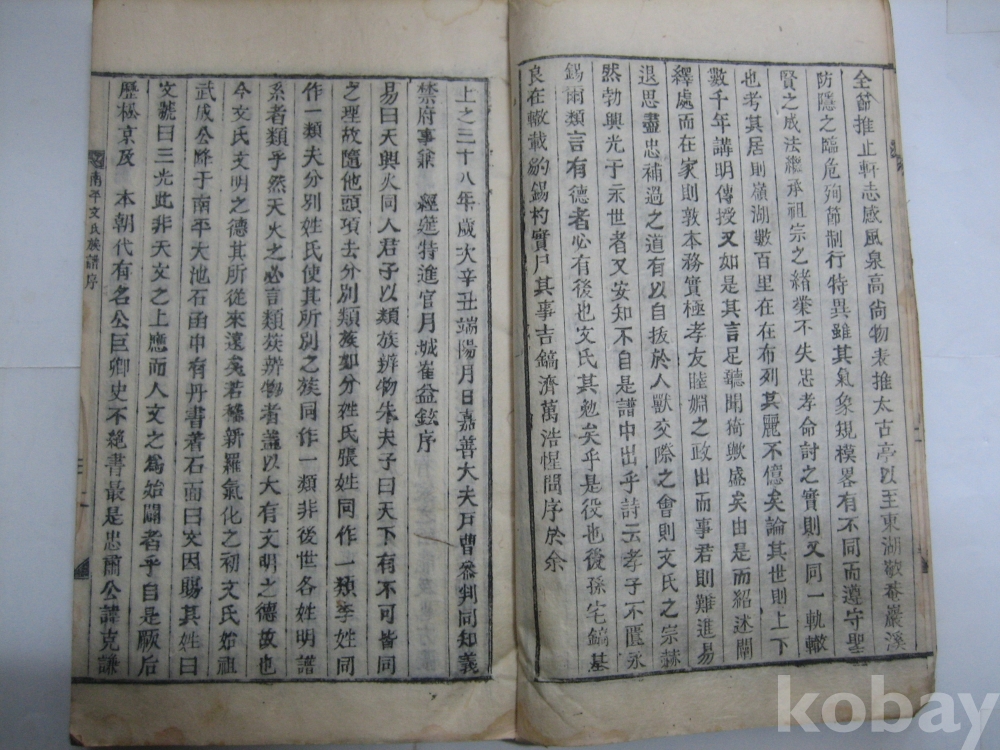 全節推止軒志感風泉高尙物表推太古亭以至東湖敬菴巖溪
防隱之臨危殉節制行特異雖其氣象規模畧有不同而遵守聖
賢之成法繼承祖宗之緖業不失忠孝命討之實則又同一軌轍
也考其居則嶺湖數百里在在布列其麗不億矣論其世則上下
數千年講明傳授又如是其言足聽聞猗歟盛矣由是而紹述闡
繹處而在家則敦本務實極孝友睦婣之政出而事君則難進易
退思盡忠補過之道有以自拔於人獸交際之會則文氏之宗赫
然勃興光于永世者又安知不自是譜中出乎詩云孝子不匱永
錫爾類言有德者必有後也文氏其勉矣乎是役也後孫宅鎬基
良在轍載豹錫杓實尸其事吉鎬濟萬浩惺問序於余
上之三十八年歲次辛丑端陽月日嘉善大夫戶曹參判同知義
禁府事兼 經筵特進官月城崔益鉉序
易曰天與火同人君子以類族辨物朱夫子曰天下有不可皆同
之理故隨他頭項去分別類族如分姓氏張姓同作一類李姓同
作一類夫分別姓氏使其所別之族同作一類非後世各姓明譜
系者類乎然天火之必言類族辨物者盖以大有文明之德故也
今文氏文明之德其所從來遠矣若稽新羅氣化之初文氏始祖
武成公降于南平大池石函中有丹書著石面曰文因賜其姓曰
文號曰三光此非天文之上應而人文之爲始闢者乎自是厥后
歷極京及 本朝代有名公巨卿史不絶書最是忠肅公諱克謙
南平文氏族譜序